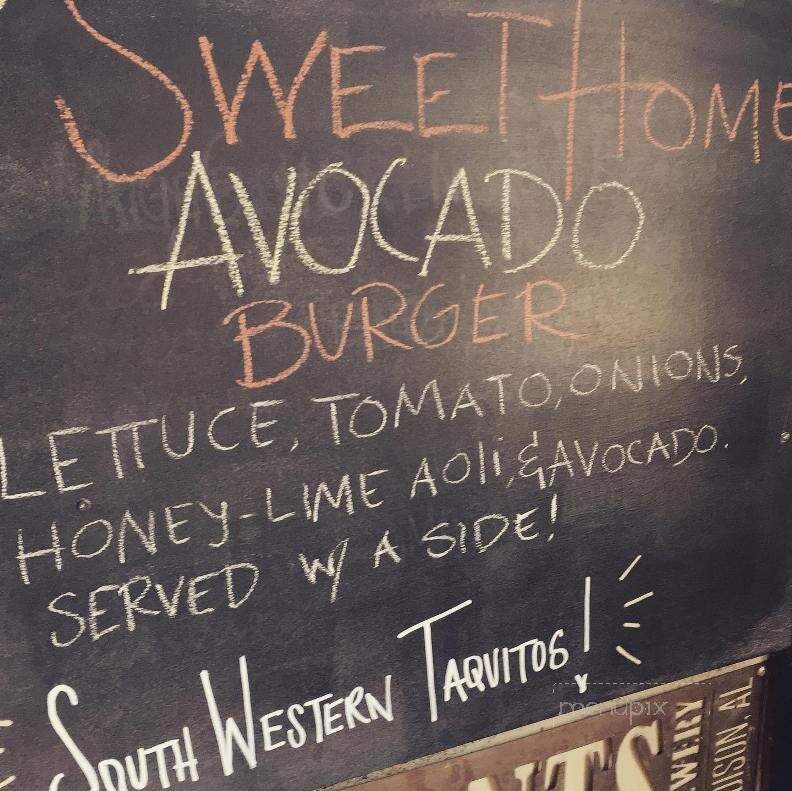 SWEET HOME
AVOCADO
BURGER
LETTUCE, TOMATO, ONIONS,
HONEY-LIME AOli, & AVOCADO.
SERVED W/ A SIDE!
SOUTH WESTERN TAQUITOS!
menupix